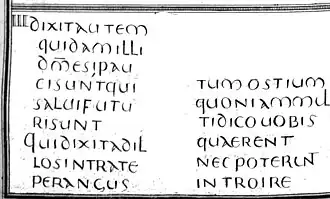 dixitautem
quidamilli
dmesipau
cisuntqui
saluifutu
risunt
Quidixitadil
losintrate
perangus
tumostium
quoniammul
tidicouobis
quaerent
necpoterunt
introire